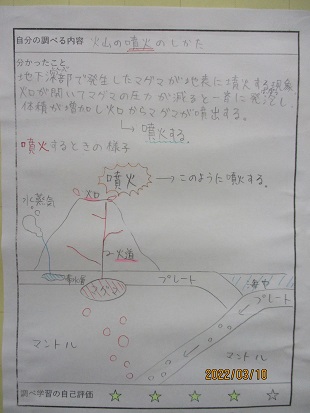 自分の調べる内容 火山の噴火のしかた
分かったこと
地下深部で発生したマグマが地表に噴火する現象
火口が開いてマグマの圧力が減ると一斉に発ぽうし、
体積が増加し火口からマグマが噴出する。
→噴火する。
噴火するときの様子
噴火
→このように噴火する。
火口
水蒸気
火道
プレート
海や
プレート
マントル
マントル
2022/03/18
調べ学習の自己評価